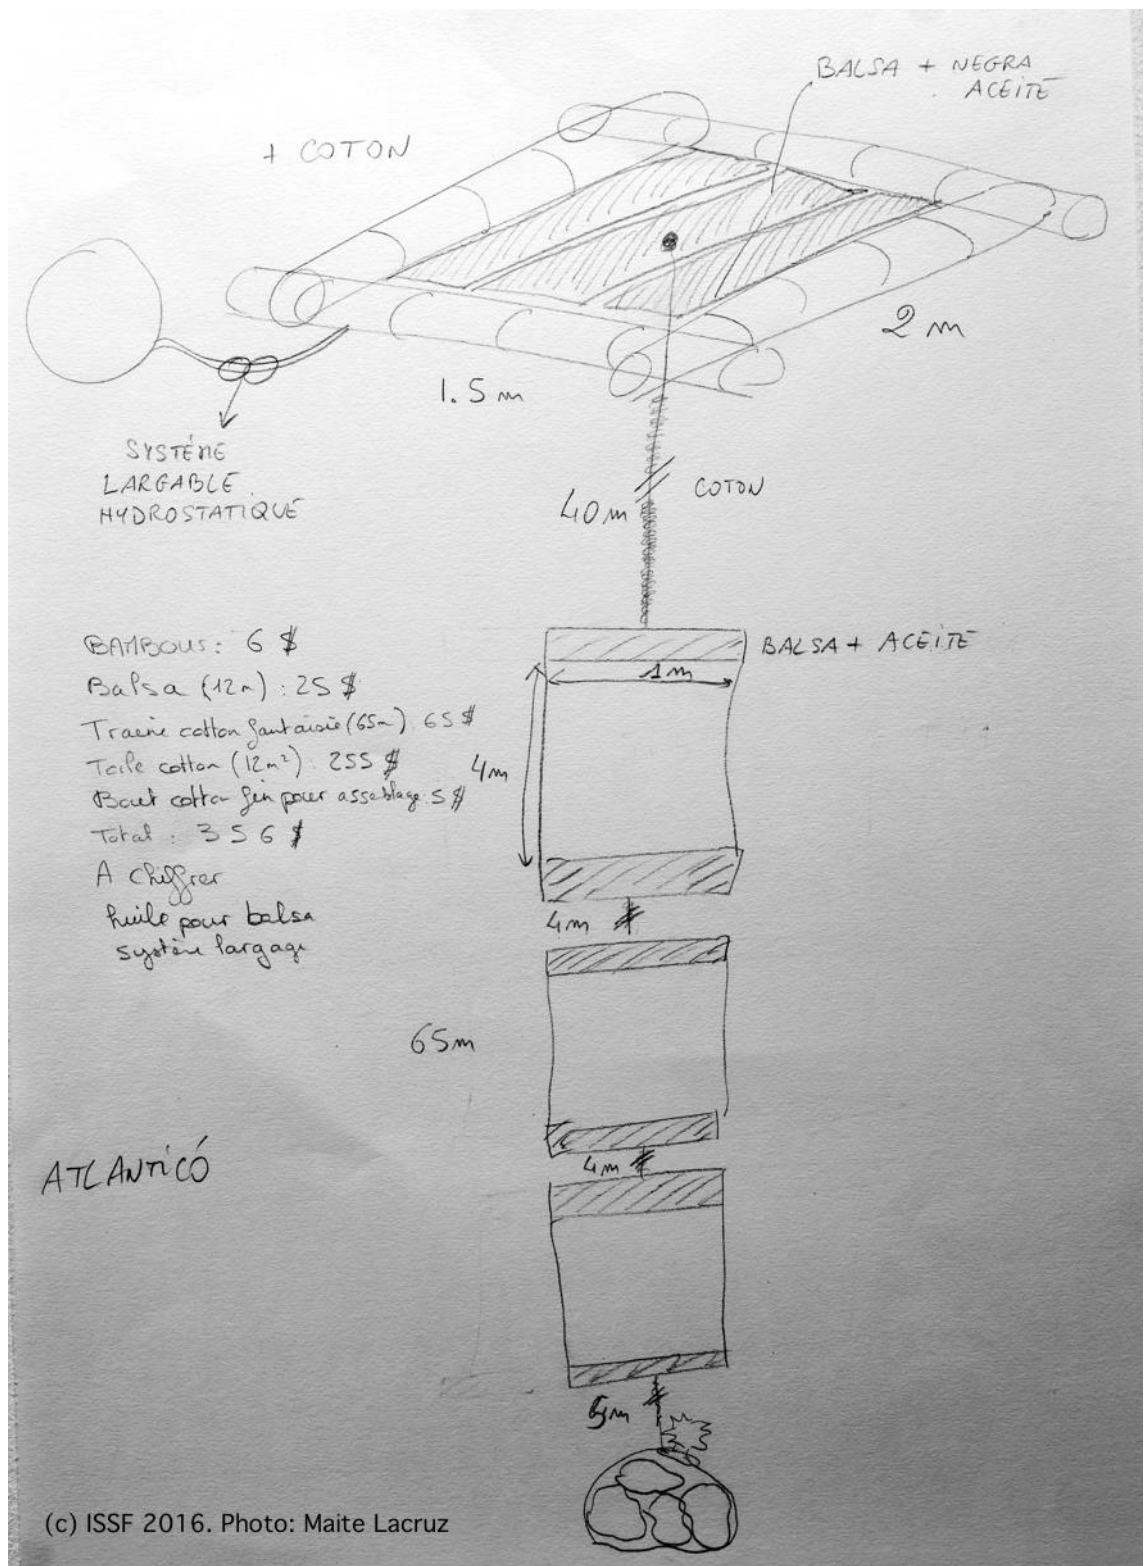 BALSA + NEGRA
ACEITE
+ COTON
2 m
1.5 m
SYSTÉME
LARGABLE
HYDROSTATIQUE
COTON
40 m
BAMBOUS : 6 $
BALSA + ACEITE
1m
Balsa (12m) : 25 $
Traine cotton fantaisie (65m) : 65 $
Toile cotton (12m²) : 255 $
4m
Bout cotton fin pour assemblage : 5 $
Total : 356 $
A chiffrer
huile pour balsa
4m
système largage
65m
4m
ATLANTICÓ
5m
(c) ISSF 2016. Photo: Maite Lacruz